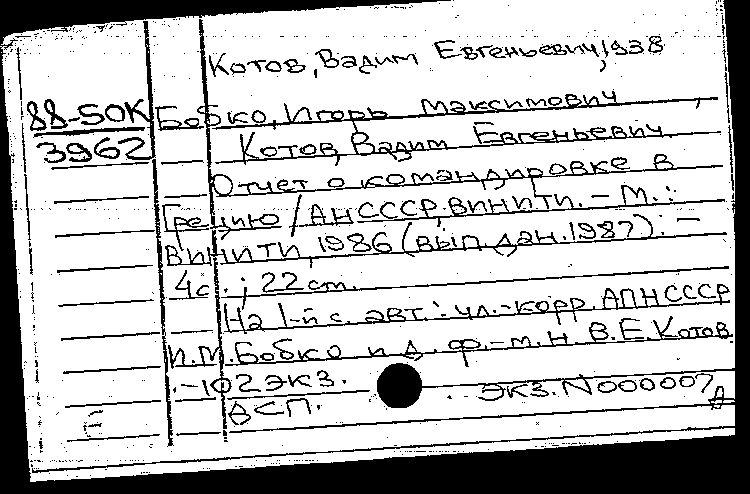 Котов, Вадим Евгеньевич, 1938
88-50К
3962
Бобко, Игорь Максимович,
Котов, Вадим Евгеньевич
Отчет о командировке в
Грецию / АН СССР, ВИНИТИ. – М.:
ВИНИТИ, 1986 (вып. дан. 1987). –
4с.; 22 см.
На 1-й с. авт.: чл.-корр. АПН СССР
И.М. Бобко и д. ф.-м. н. В.Е. Котов
. – 102 экз.
ДСП. . экз. N 000007